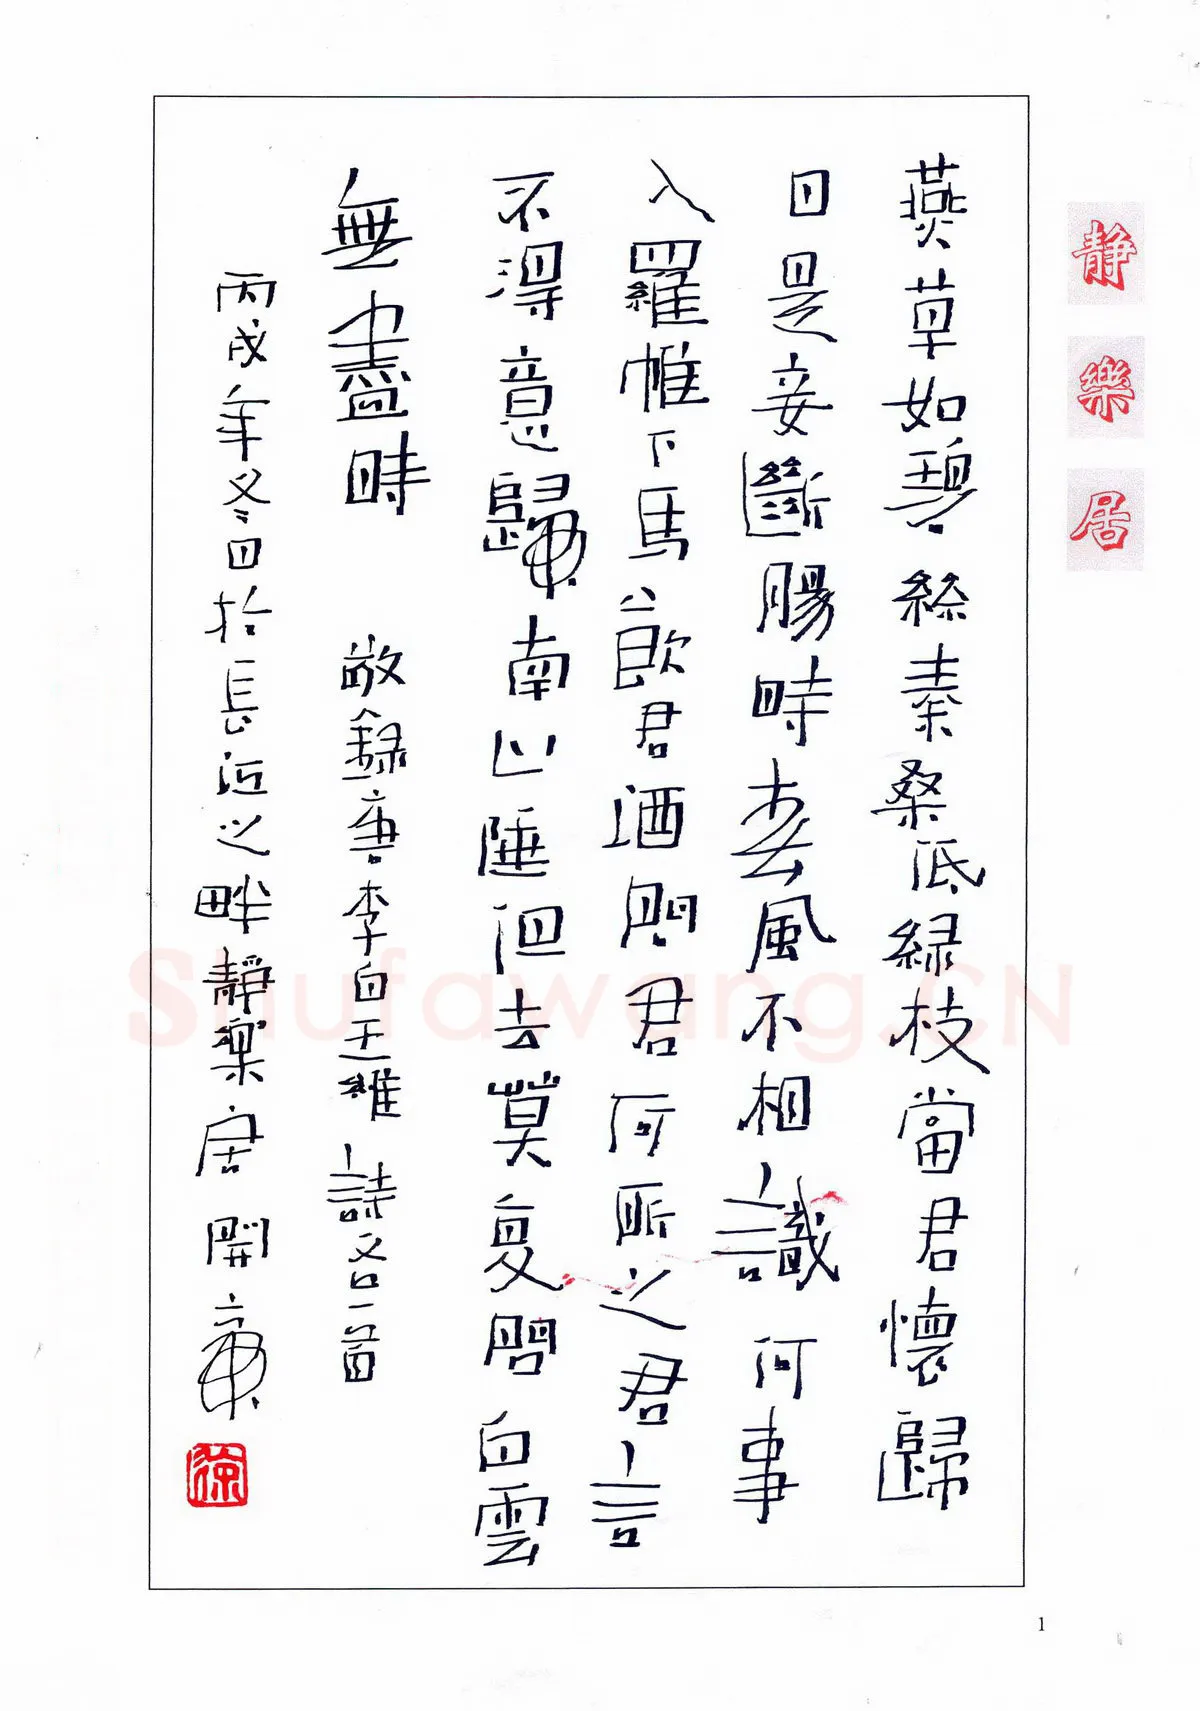 靜樂居
燕草如碧絲秦桑低綠枝當君懷歸
日是妾斷腸時春風不相識何事
入羅帷下馬飲君酒問君何所之君言
不得意歸臥南山陲但去莫復問白雲
無盡時 敬錄唐李白王維詩各一首
丙戌年冬日於長江之畔靜樂居 開康
Shufawang.CN
1